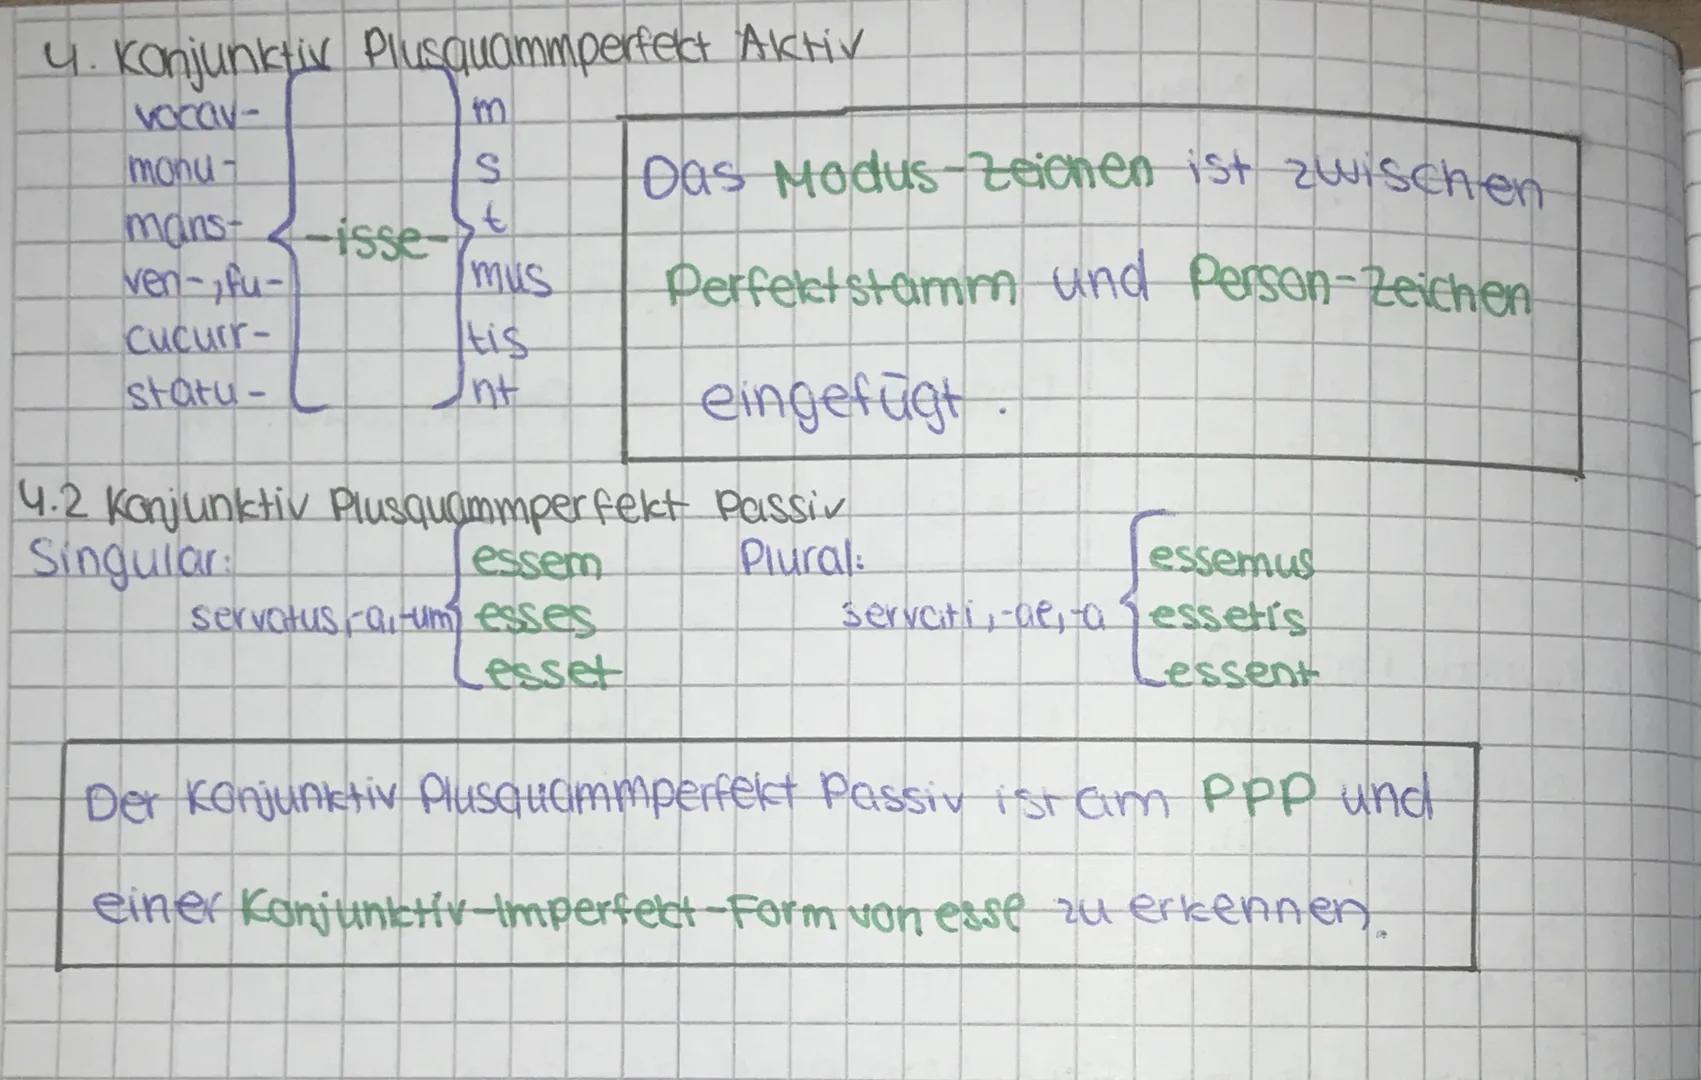 4. Konjunktiv Plusquammperfekt Aktiv
vocav- m
monu- s
mans- -isse- t
ven-, fu- mus
cucurr- tis
statu- nt
Das Modus-Zeichen ist zwischen
Perfektstamm und Person-Zeichen
eingefügt.
4.2 Konjunktiv Plusquammperfekt Passiv
Singular: essem Plural: essemus
servatus, -a, -um esses servati, -ae, -a essetis
esset essent
Der Konjunktiv Plusquammperfekt Passiv ist am PPP und
einer Konjunktiv-Imperfekt-Form von esse zu erkennen.